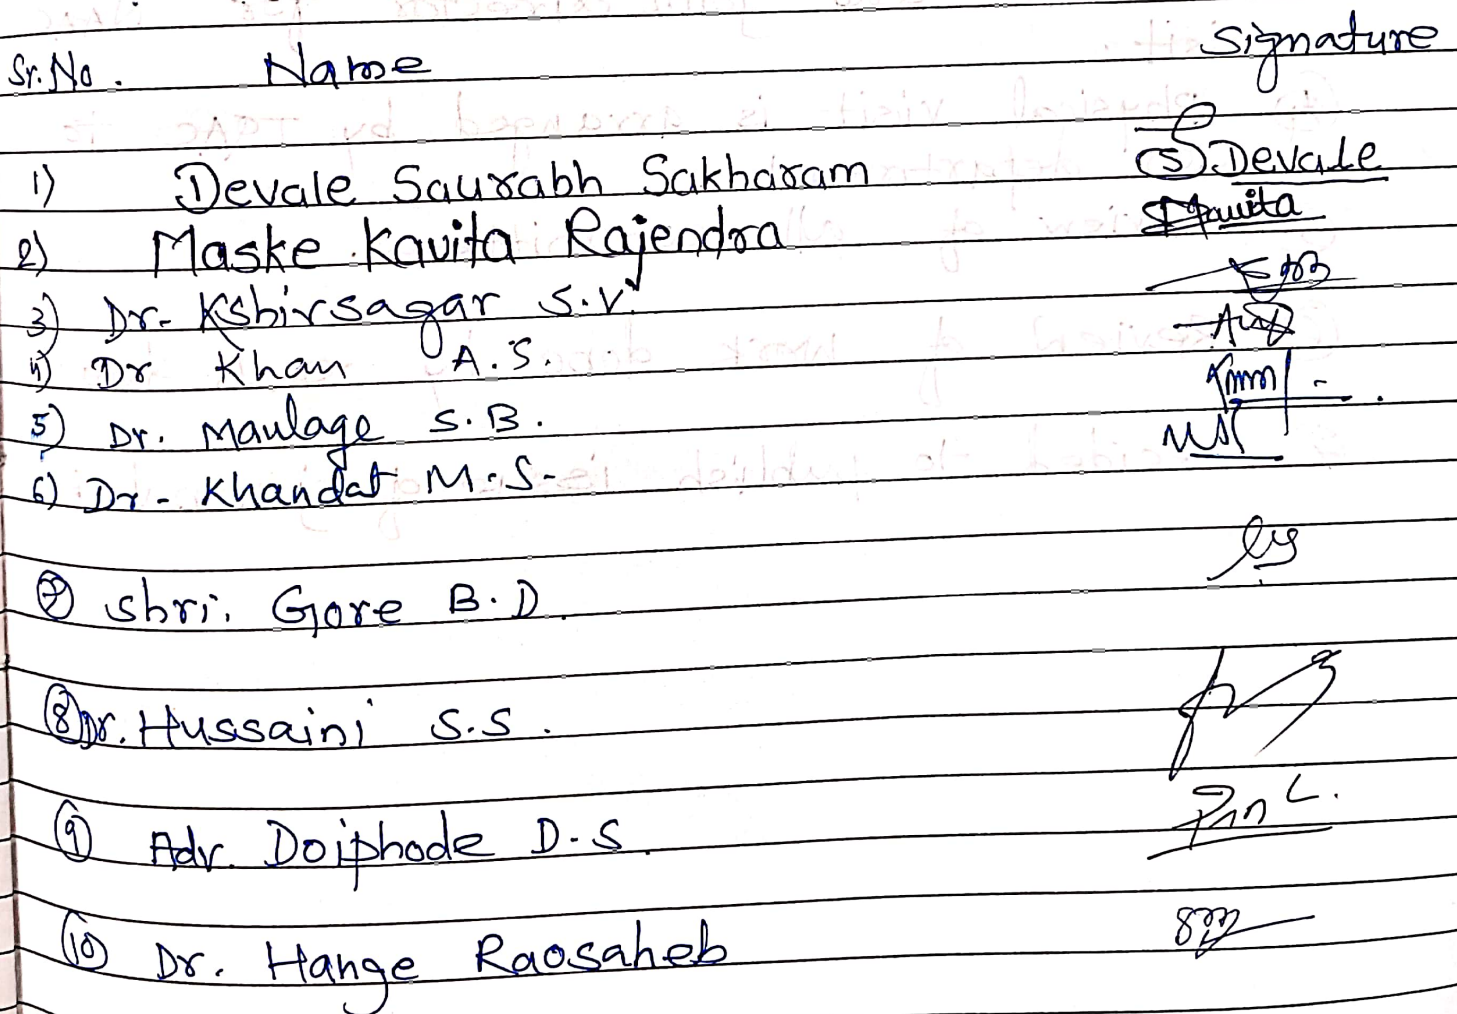 Sr. No. Name Signature
1) Devale Saurabh Sakharam S. Devale
2) Maske Kavita Rajendra Kavita
3) Dr. Kshirsagar S.V.
4) Dr Khan A.S.
5) Dr. Maulage S.B.
6) Dr - Khandat M.S-
7) Shri. Gore B.D.
8) Dr. Hussaini S.S.
9) Adv. Doiphode D.S.
10) Dr. Hange Raosaheb